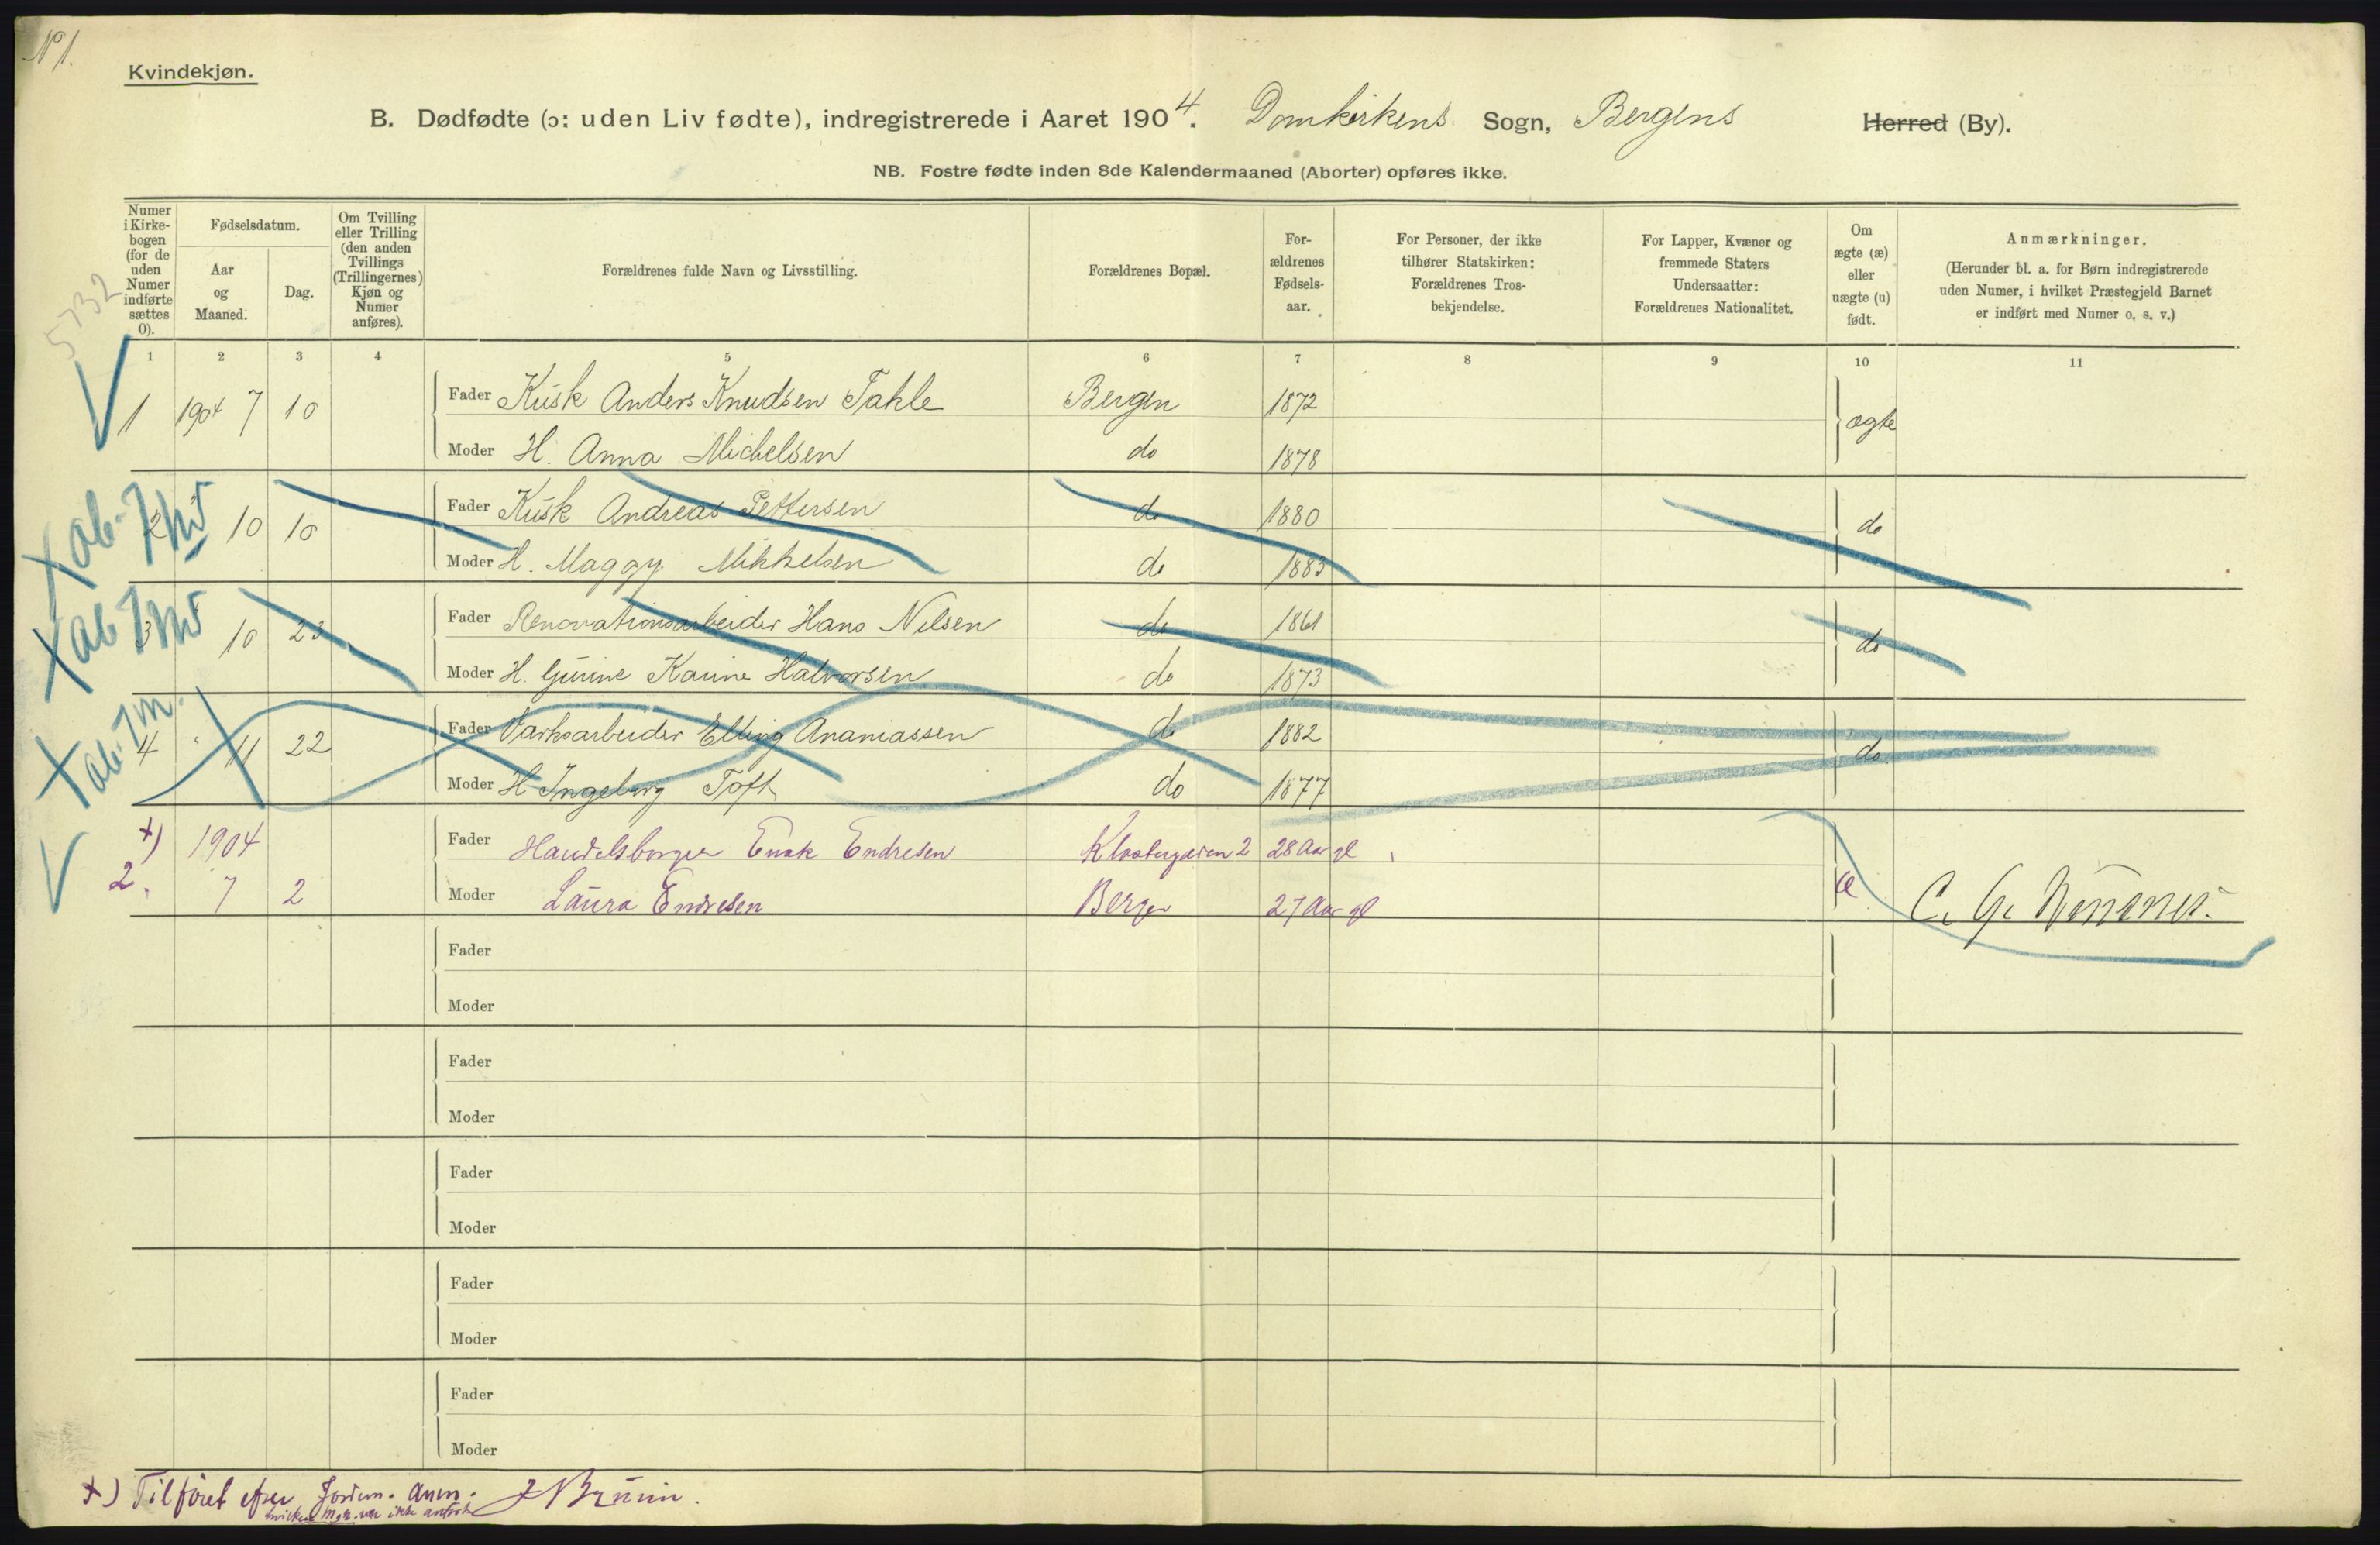 No 1.
Kvindekjøn.
B. Dødfødte (ɔ: uden Liv fødte), indregistrerede i Aaret 1904. Domkirkens Sogn, Bergens Herred (By).
NB. Fostre fødte inden 8de Kalendermaaned (Aborter) opføres ikke.
Numer i Kirke-bogen (for de uden Numer indførte sættes 0).
Fødselsdatum.
Aar og Maaned.
Dag.
Om Tvilling eller Trilling (den anden Tvillings (Trillingernes) Kjøn og Numer anføres).
Forældrenes fulde Navn og Livsstilling.
Forældrenes Bopæl.
For-ældrenes Fødsels-aar.
For Personer, der ikke tilhører Statskirken: Forældrenes Tros-bekjendelse.
For Lapper, Kvæner og fremmede Staters Undersaatter: Forældrenes Nationalitet.
Om ægte (æ) eller uægte (u) født.
Anmærkninger.
(Herunder bl. a. for Børn indregistrerede uden Numer, i hvilket Præstegjeld Barnet er indført med Numer o. s. v.)
5732
1 2 3 4 5 6 7 8 9 10 11
1 1904 7 10 Fader Kusk Anders Knudsen Takle Bergen 1872 ægte
Moder H. Anna Michelsen do 1878
2 10 10 Fader Kusk Andreas Pettersen do 1880 do
Moder H. Maggy Mikkelsen do 1883
3 10 23 Fader Renovationsarbeider Hans Nilsen do 1861 do
Moder H. Gurine Karine Halvorsen do 1873
4 " 11 22 Fader Værksarbeider Elling Ananiassen do 1882 do
Moder H Ingeborg Toft do 1877
+) 1904 Fader Handelsborger Enok Endresen Klostergaden 2 28 Aar gl
2. 7 2 Moder Laura Endresen Bergen 27 Aar gl æ
Fader
Moder
Fader
Moder
Fader
Moder
Fader
Moder
Fader
Moder
+) Tilføiet efter Jordm. anm.
hvilken var ikke anført